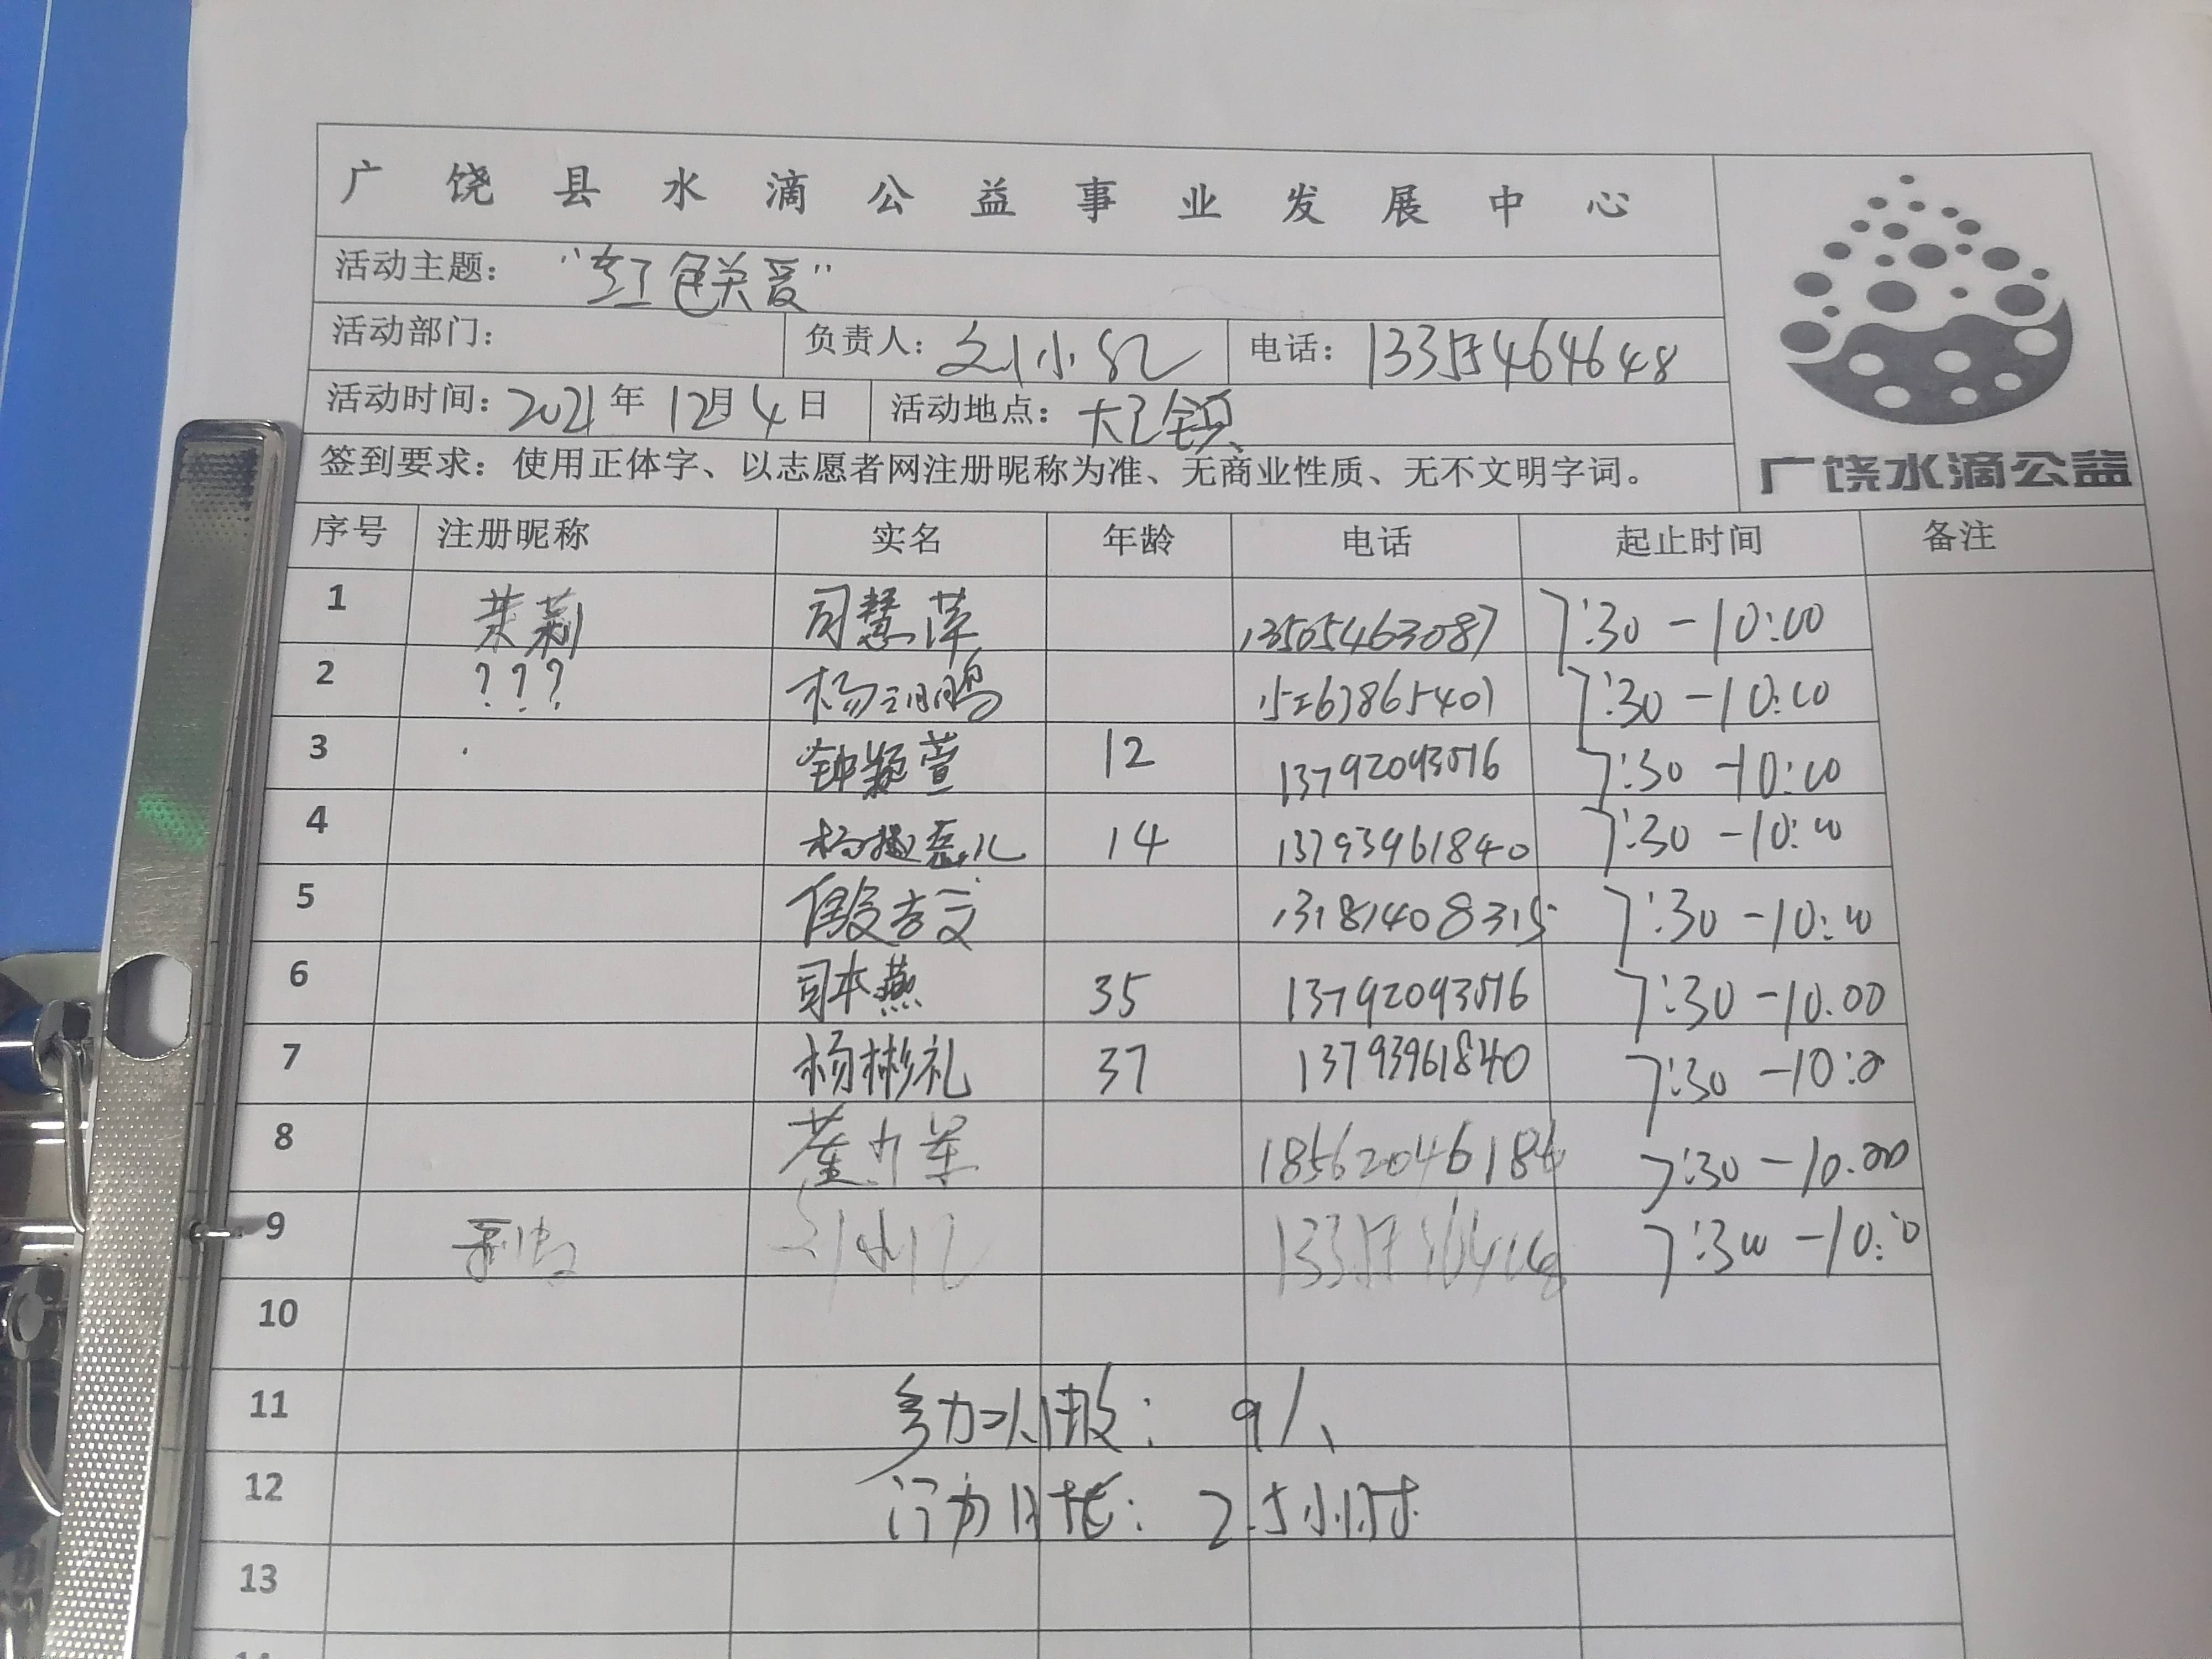 广饶县水滴公益事业发展中心
活动主题："红色关爱"
活动部门： 负责人：刘小红 电话：
活动时间：2021年12月4日 活动地点：大王镇
广饶水滴公益
签到要求：使用正体字、以志愿者网注册昵称为准、无商业性质、无不文明字词。
序号 注册昵称 实名 年龄 电话 起止时间 备注
1 茉莉 司慧萍 13505463087 7:30-10:00
2 ??? 7:30-10:00
3 钟颖萱 12 13792093576 7:30-10:00
4 14 13793961840 7:30-10:00
5 13181408315 7:30-10:00
6 司本燕 35 13792093576 7:30-10.00
7 杨彬礼 37 13793961840 7:30-10:00
8 18562046186 7:30-10.00
9 7:30-10:00
10
11 参加人数：9人
12 活动时长：2.5小时
13